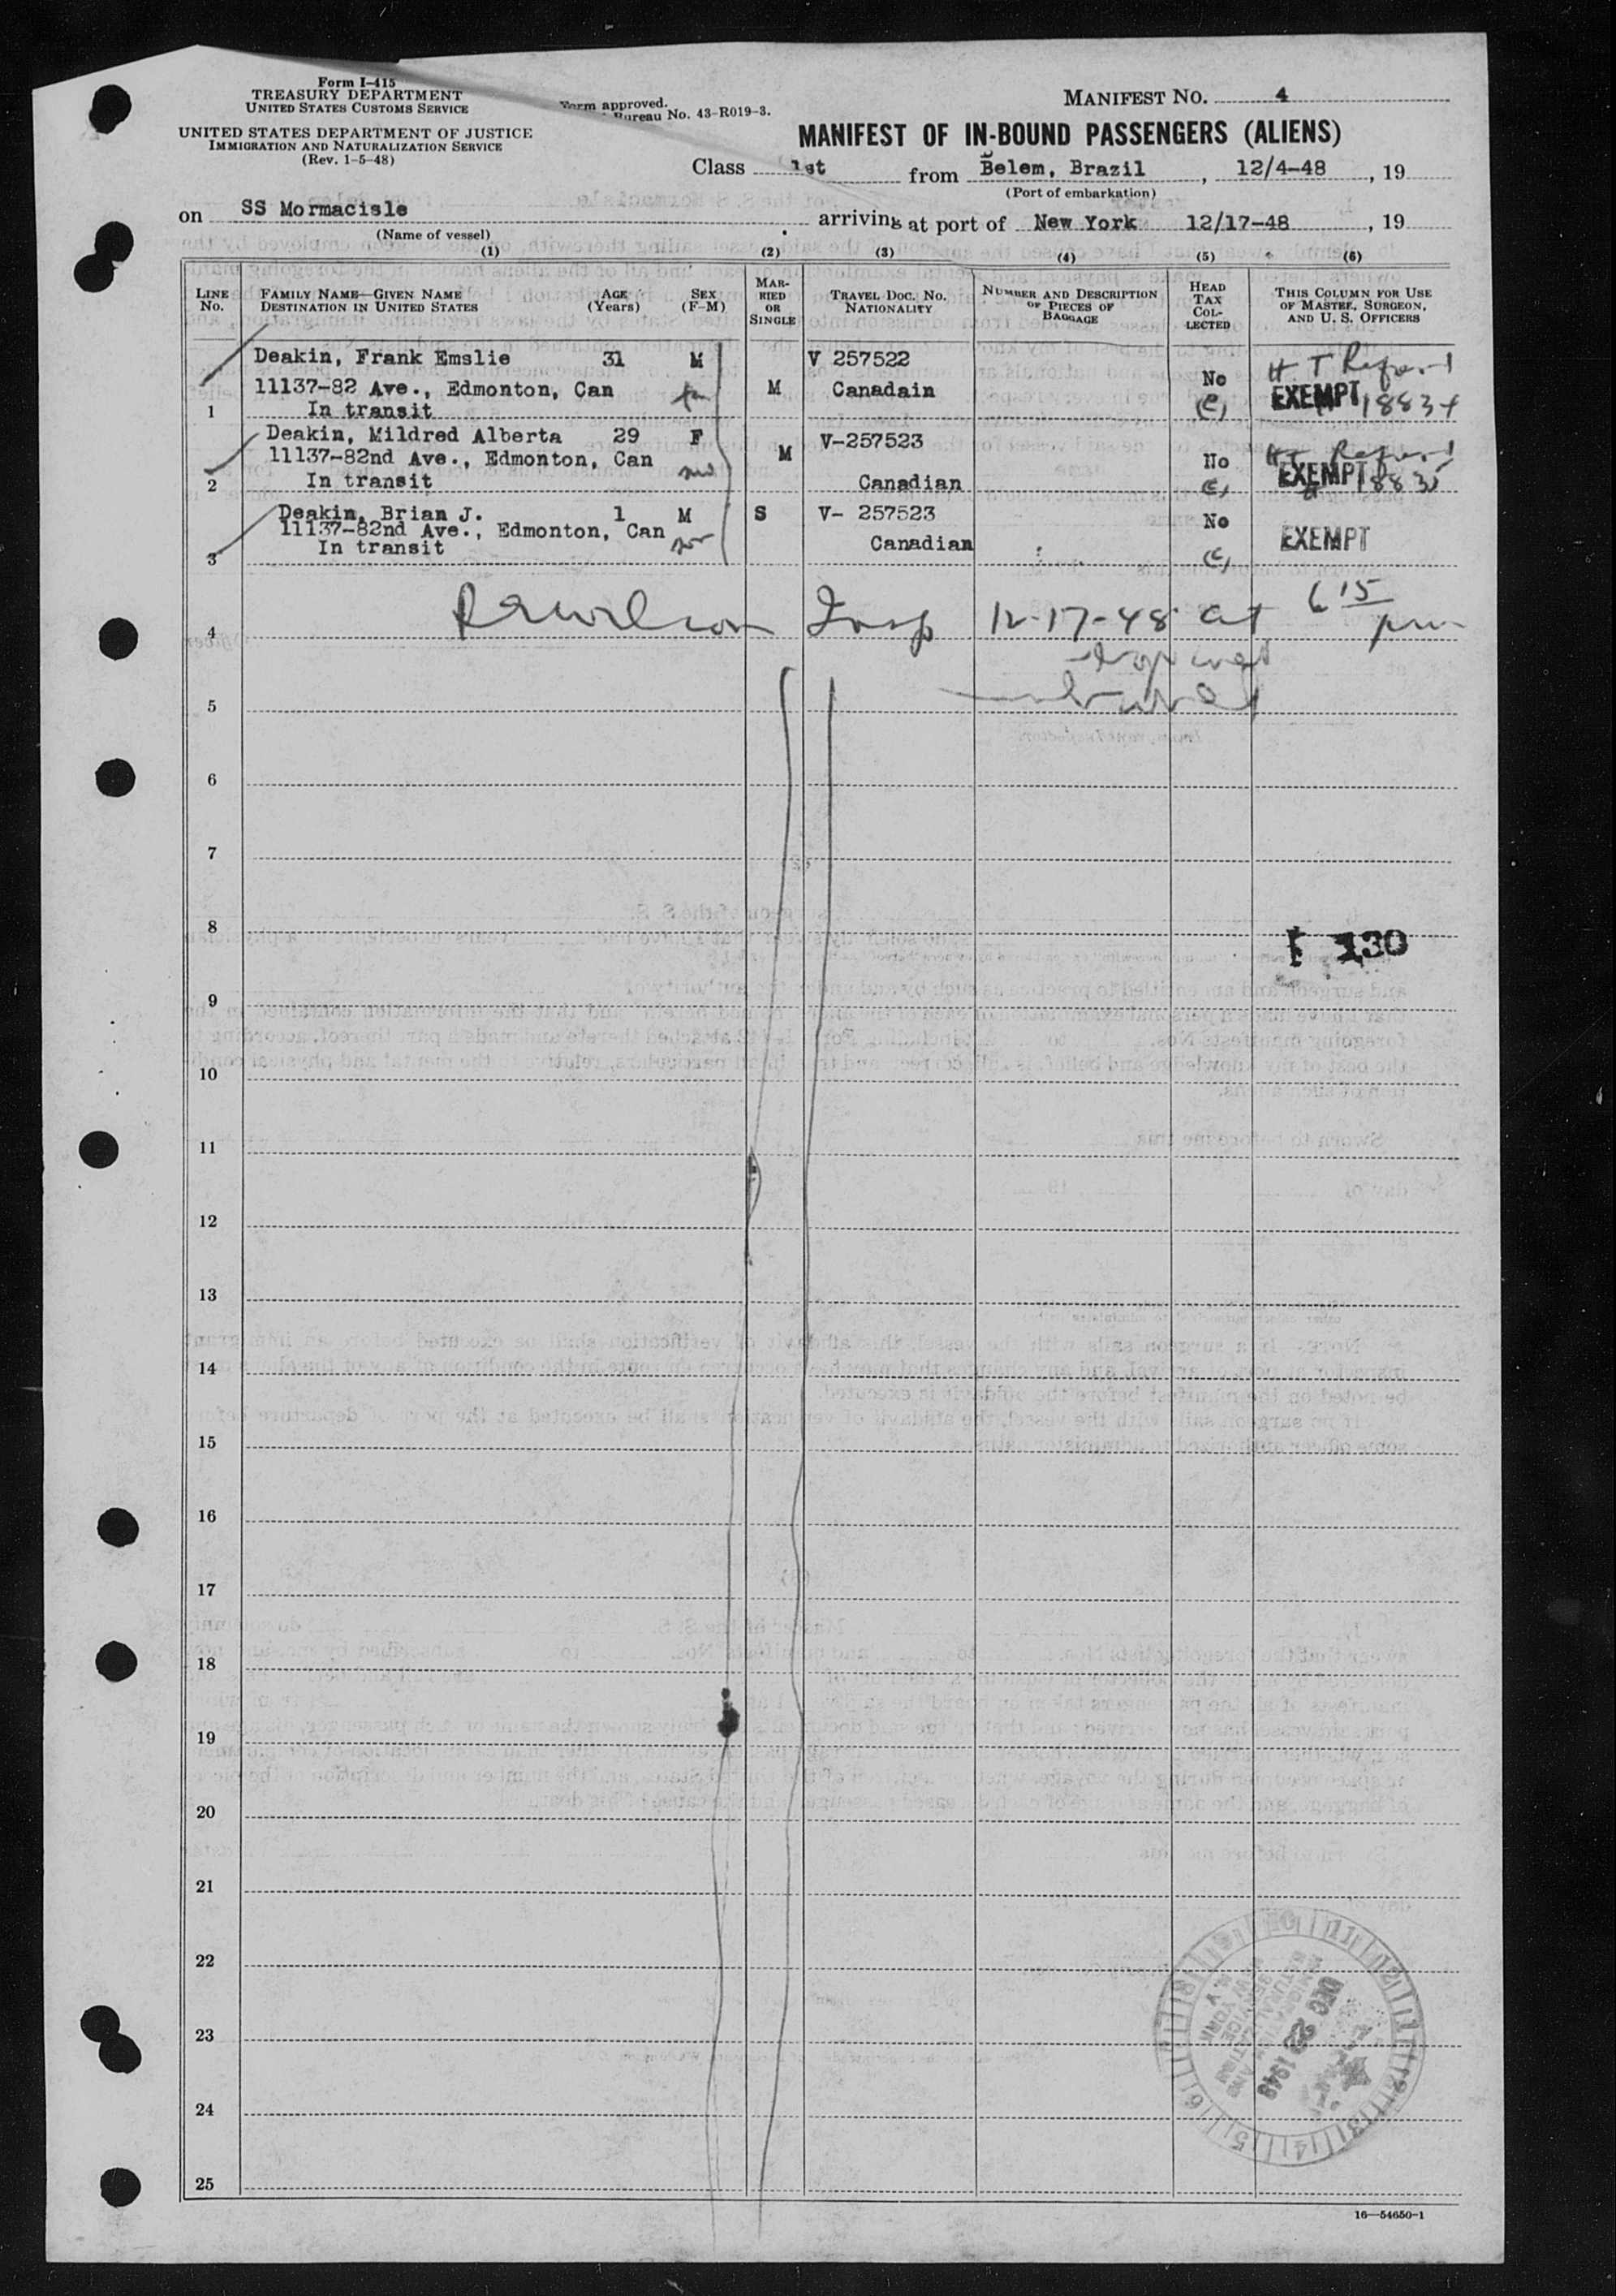 Form I-415
TREASURY DEPARTMENT
UNITED STATES CUSTOMS SERVICE
UNITED STATES DEPARTMENT OF JUSTICE
IMMIGRATION AND NATURALIZATION SERVICE
(Rev. 1-5-48)
Form approved.
Bureau No. 43-R019-3.
MANIFEST NO. 4
MANIFEST OF IN-BOUND PASSENGERS (ALIENS)
Class 1st from Belem, Brazil, 12/4-48, 19
(Port of embarkation)
on SS Mormacisle arriving at port of New York 12/17-48, 19
(Name of vessel)
(1) (2) (3) (4) (5) (6)
LINE No. FAMILY NAME—GIVEN NAME DESTINATION IN UNITED STATES AGE (Years) SEX (F-M) MARRIED OR SINGLE TRAVEL DOC. NO. NATIONALITY NUMBER AND DESCRIPTION OF PIECES OF BAGGAGE HEAD TAX COLLECTED THIS COLUMN FOR USE OF MASTER, SURGEON, AND U. S. OFFICERS
Deakin, Frank Emslie 31 M V 257522 H T
11137-82 Ave., Edmonton, Can M Canadain No EXEMPT 18834
1 In transit (C)
Deakin, Mildred Alberta 29 F V-257523 HT
11137-82nd Ave., Edmonton, Can M No EXEMPT 18835
2 In transit Canadian (C)
Deakin, Brian J. 1 M S V- 257523 No
11137-82nd Ave., Edmonton, Can EXEMPT
3 In transit Canadian (C)
4 Insp 12-17-48 at 6 15 pm
5
6
7
8 130
9
10
11
12
13
14
15
16
17
18
19
20
21
22
23 DEC 22 1948
24
25
16—54650-1